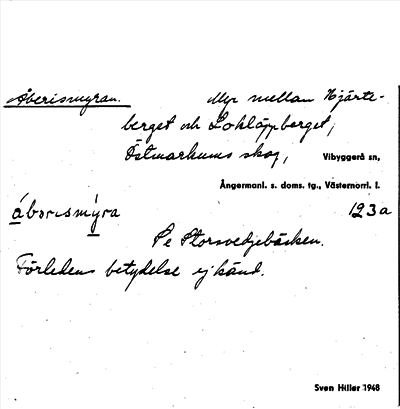 Åberismyran. Myr mellan Hjärte-
berget och Lokläppberget,
Östmarkums skog, Vibyggerå sn,
Ångermanl. s. doms. tg., Västernorrl. l.
áborismy̱ra 123a
Se Storsvedjebäcken.
Förledens betydelse ej känd.
Sven Hiller 1948